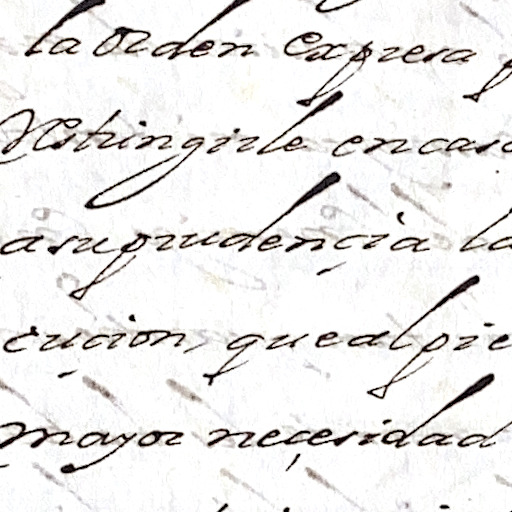 la orden expresa p
Restringirle en caso
a su prudençia la
cucion, que al pie
mayor neçesidad